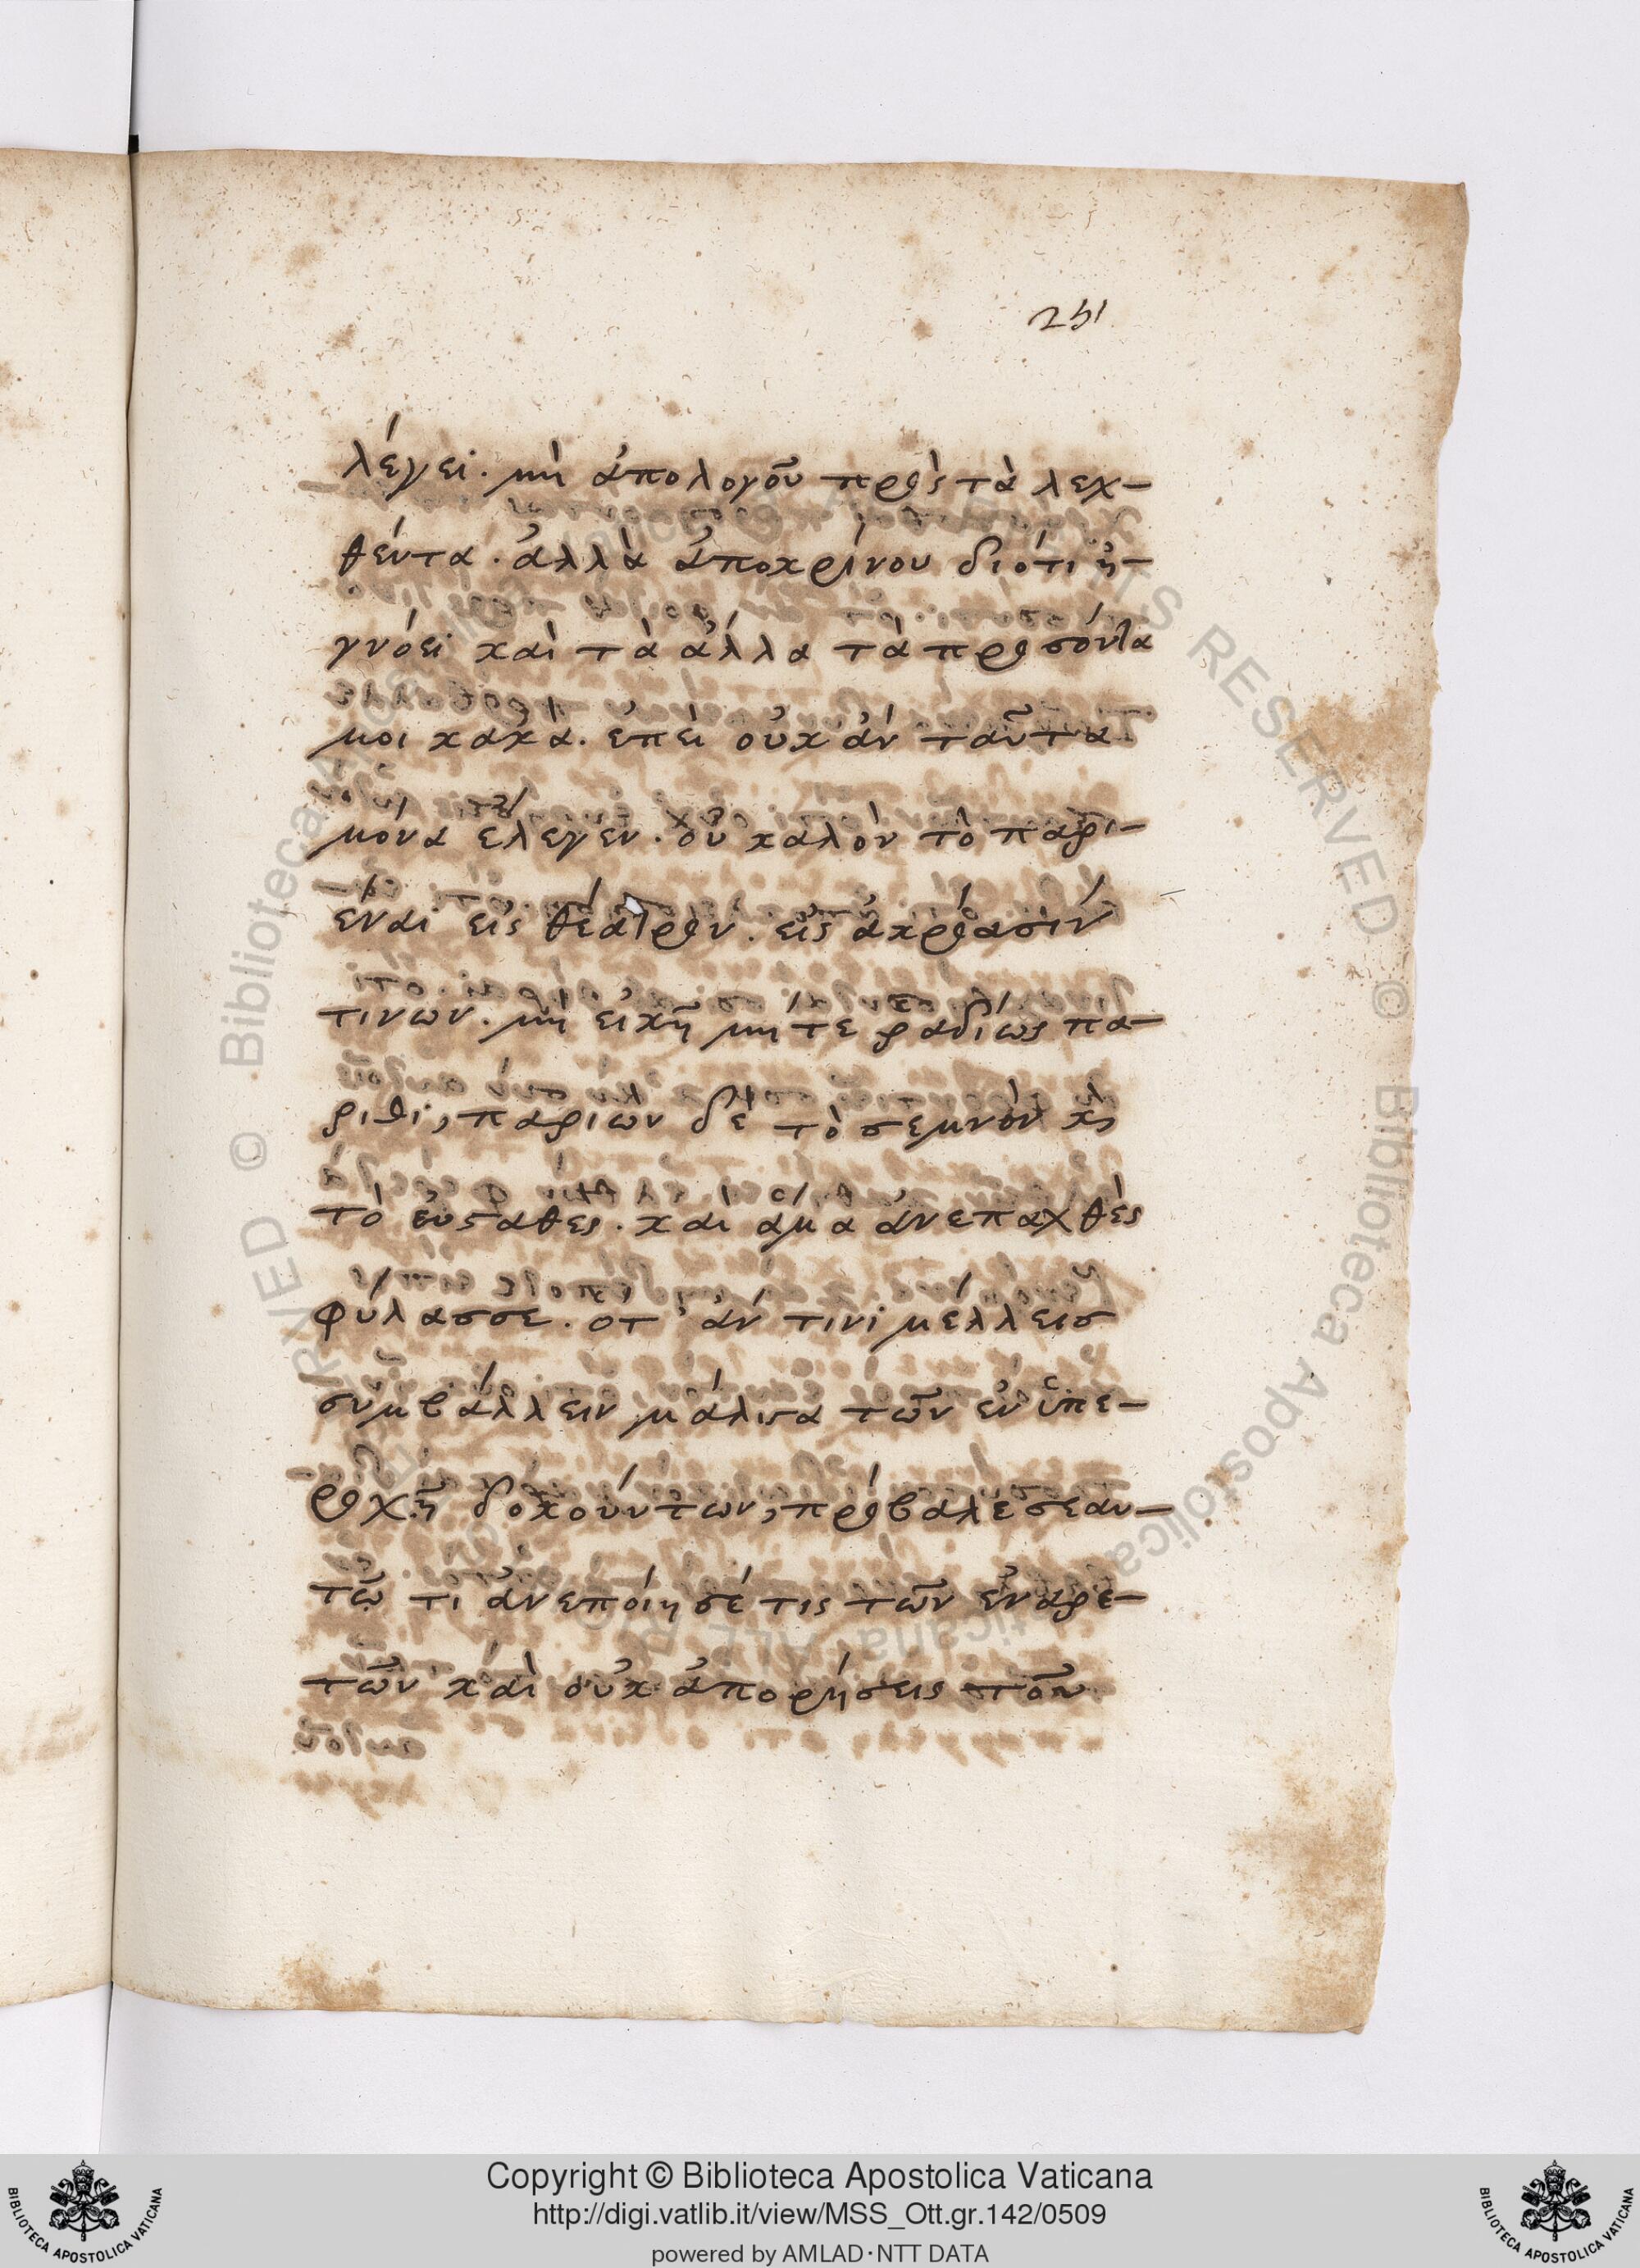 251
λέγει. μὴ ἀπολογοῦ πρὸς τὰ λεχ-
θέντα. ἀλλὰ ἀποκρίνου διότι ἠ-
γνόει καὶ τὰ ἄλλα τὰ προσόντα
μοι κακά. ἐπεὶ οὐκ ἂν ταῦτα
μόνα ἔλεγεν. οὐ καλὸν τὸ παρι-
έναι εἰς θέατρον. εἰς ἀκρόασίν
τινων. μὴ εἰκῇ μήτε ῥαδίως πά-
ριθι, παριὼν δὲ τὸ σεμνὸν κ̀
τὸ εὐσταθες. καὶ ἅμα ἀνεπαχθὲς
φύλασσε. ὅτ' ἄν τινι μέλλεις
συμβάλλειν μάλιστα τῶν ἐν ὑπε-
ροχῇ δοκούντων, πρόβαλε σεαυ-
τῷ τί ἂν ἐποίησέ τις τῶν ἐναρέ-
των καὶ οὐκ ἀπορήσεις τοῦ
Copyright © Biblioteca Apostolica Vaticana
http://digi.vatlib.it/view/MSS_Ott.gr.142/0509
powered by AMLAD·NTT DATA
BIBLIOTECA APOSTOLICA VATICANA
BIBLIOTECA APOSTOLICA VATICANA